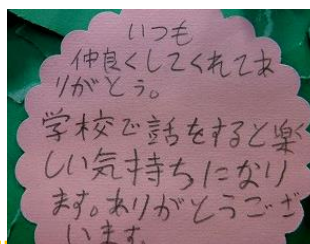 いつも
仲良くしてくれてあ
りがとう。
学校で話をすると楽
しい気持ちになり
ます。ありがとうござ
います。